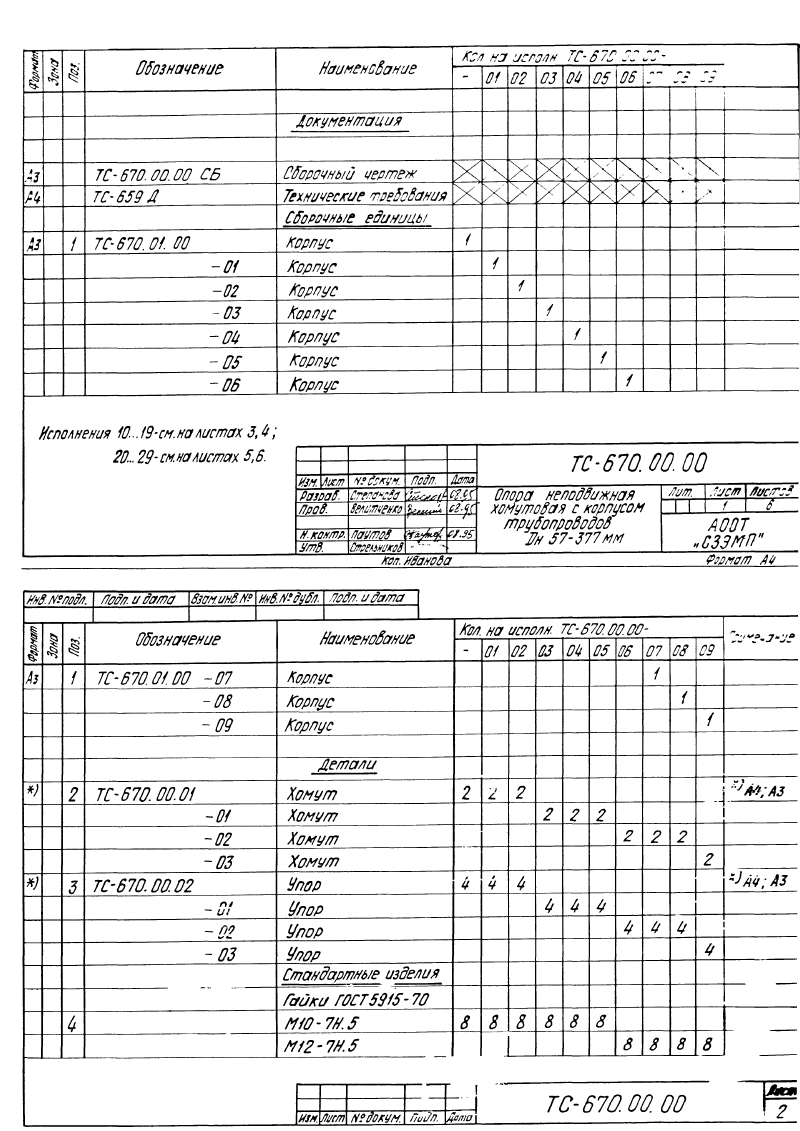 Формат Зона Поз. Обозначение Наименование Кол на исполн ТС-670.00.00-
- 01 02 03 04 05 06 07 08 09
Документация
А3 ТС-670.00.00 СБ Сборочный чертеж
А4 ТС-659 Д Технические требования
Сборочные единицы
А3 1 ТС-670.01.00 Корпус 1
-01 Корпус 1
-02 Корпус 1
-03 Корпус 1
-04 Корпус 1
-05 Корпус 1
-06 Корпус 1
Исполнения 10...19-см.на листах 3,4;
20...29-см.на листах 5,6.
ТС-670.00.00
Изм. Лист № докум. Подп. Дата
Разраб. Степанова 08.95
Пров. Велитченко 08.95
Н.контр. Паутов 08.95
Утв. Стрельников
Опора неподвижная
хомутовая с корпусом
трубопроводов
Dн 57-377 мм
Лит. Лист Листов
1 6
АООТ
„СЗЭМП"
Коп. Иванова Формат А4
Инв.№ подл. Подп. и дата Взам.инв.№ Инв.№ дубл. Подп. и дата
Формат Зона Поз. Обозначение Наименование Кол. на исполн. ТС-670.00.00- Примечание
- 01 02 03 04 05 06 07 08 09
А3 1 ТС-670.01.00 -07 Корпус 1
-08 Корпус 1
-09 Корпус 1
Детали
*) 2 ТС-670.00.01 Хомут 2 2 2 *) А4; А3
-01 Хомут 2 2 2
-02 Хомут 2 2 2
-03 Хомут 2
*) 3 ТС-670.00.02 Упор 4 4 4 *) А4; А3
-01 Упор 4 4 4
-02 Упор 4 4 4
-03 Упор 4
Стандартные изделия
Гайки ГОСТ 5915-70
4 М10-7Н.5 8 8 8 8 8 8
М12-7Н.5 8 8 8 8
Изм. Лист № докум. Подп. Дата
ТС-670.00.00
Лист
2